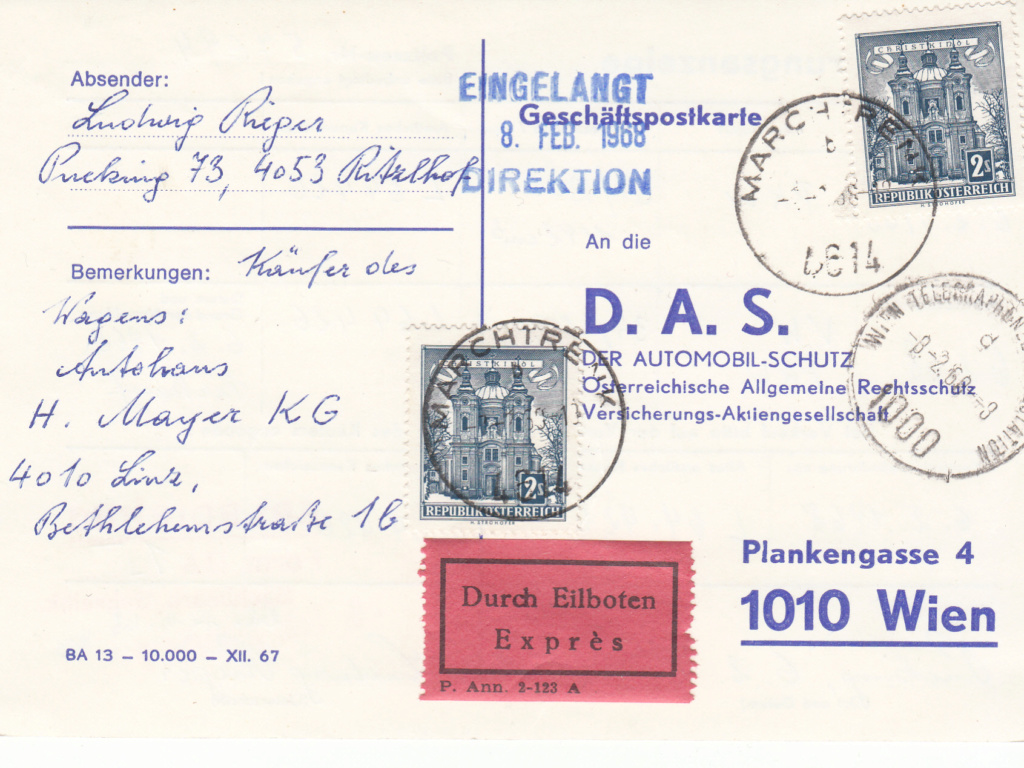 Absender:
Ludwig Rieger
Pucking 73, 4053 Ritzlhof
Bemerkungen: Käufer des
Wagens:
Autohaus
H. Mayer KG
4010 Linz,
Bethlehemstraße 1b
BA 13 – 10.000 – XII. 67
EINGELANGT
Geschäftspostkarte
8. FEB. 1968
DIREKTION
An die
D. A. S.
DER AUTOMOBIL-SCHUTZ
Österreichische Allgemeine Rechtsschutz
Versicherungs-Aktiengesellschaft
Plankengasse 4
1010 Wien
CHRISTKINDL
2s
REPUBLIK ÖSTERREICH
H. STROHOFER
MARCHTRENK
b
4614
CHRISTKINDL
2s
REPUBLIK ÖSTERREICH
H. STROHOFER
MARCHTRENK
b
4614
WIEN TELEGRAPHENZENTRALSTATION
d
1000
Durch Eilboten
Exprès
P. Ann. 2-123 A